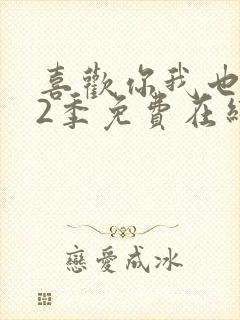 喜歡你我也
2季免費在線
戀愛成冰